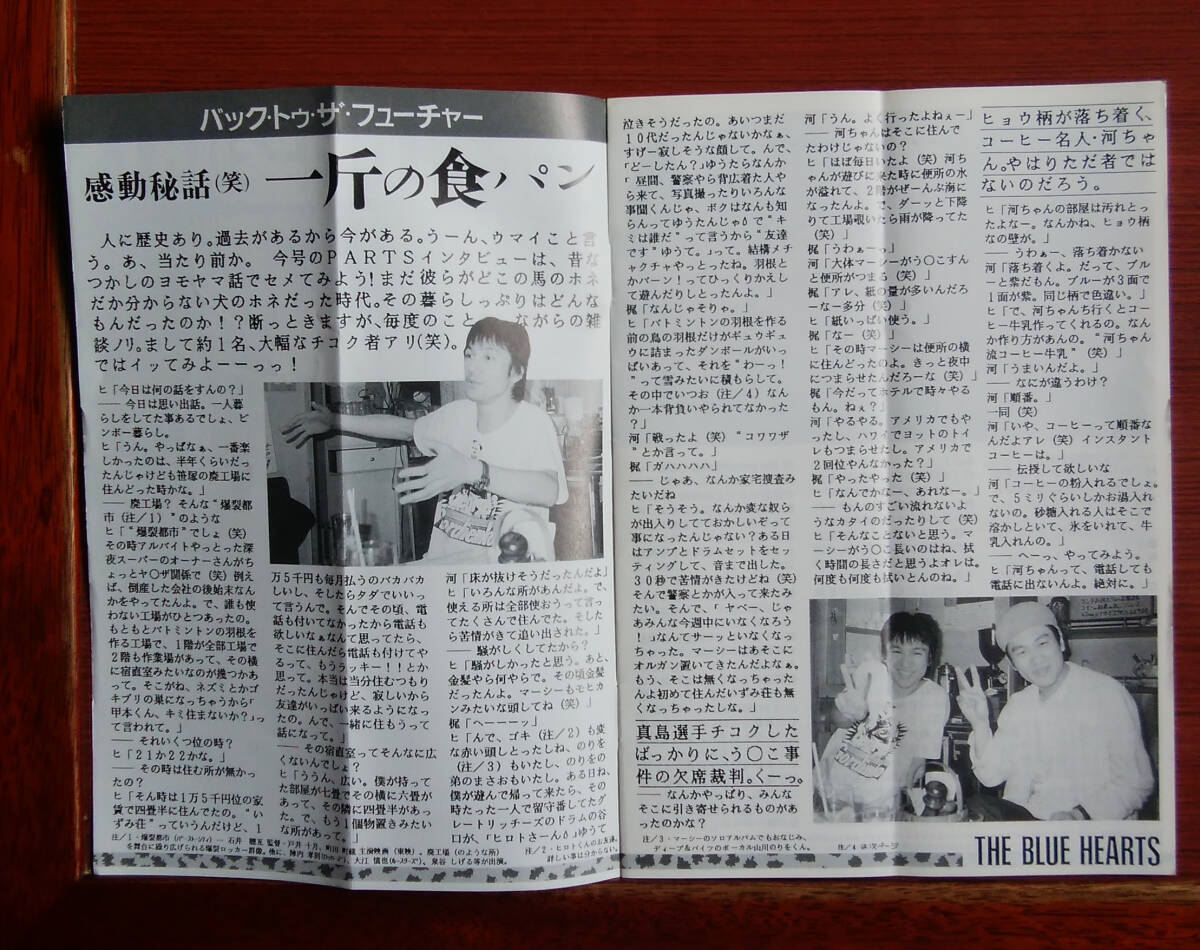 バック・トゥ・ザ・フューチャー
感動秘話(笑) 一斤の食パン
人に歴史あり。過去があるから今がある。うーん、ウマイこと言
う。あ、当たり前か。 今号のPARTSインタビューは、昔な
つかしのヨモヤマ話でセメてみよう!まだ彼らがどこの馬のホネ
だか分からない犬のホネだった時代。その暮らしっぷりはどんな
もんだったのか!?断っときますが、毎度のこと ながらの雑
談ノリ。まして約1名、大幅なチコク者アリ(笑)。
ではイッてみよーーっっ!
ヒ「今日は何の話をすんの?」
── 今日は思い出話。一人暮
らしをしてた事あるでしょ、ビ
ンボー暮らし。
ヒ「うん。やっぱなぁ、一番楽
しかったのは、半年くらいだっ
たんじゃけども笹塚の廃工場に
住んどった時かな。」
── 廃工場? そんな“爆裂都
市(注/1)”のような
ヒ「“爆裂都市”でしょ(笑)
その時アルバイトやっとった深
夜スーパーのオーナーさんがち
ょっとヤ〇ザ関係で(笑)例え
ば、倒産した会社の後始末なん
かをやってたんよ。で、誰も使
わない工場がひとつあったの。
もともとバトミントンの羽根を
作る工場で、1階が全部工場で
2階も作業場があって、その横
に宿直室みたいなのが幾つかあ
って。そこがね、ネズミとかゴ
キブリの巣になっちゃうから「
甲本くん、キミ住まないか?」っ
て言われて。」
── それいくつ位の時?
ヒ「21か22かな。」
── その時は住む所が無かっ
たの?
ヒ「そん時は1万5千円位の家
賃で四畳半に住んでたの。“い
ずみ荘”っていうんだけど、1
万5千円も毎月払うのバカバカ
しいし、そしたらタダでいいっ
て言うんで。そんでその頃、電
話も付いてなかったから電話も
欲しいなぁなんて思ってたら、
そこに住んだら電話も付けてや
るって、もうラッキー!!とか
思って。本当は当分住むつもり
だったんじゃけど、寂しいから
友達がいっぱい来るようになっ
たの。んで、一緒に住もうって
話になって。」
── その宿直室ってそんなに広
くないんでしょ?
ヒ「ううん、広い。僕が持って
た部屋が七畳でその横に六畳が
あって、その隣に四畳半があっ
た。で、もう1個物置きみたい
な所があって。」
河「床が抜けそうだったんだよ」
ヒ「いろんな所があんだよ。で、
使える所は全部使おうって言っ
てたくさんで住んでた。そした
ら苦情がきて追い出された。」
── 騒がしくしてたから?
ヒ「騒がしかったと思う。あと、
金髪やら何やらで。その頃金髪
だったんよ。マーシーもモヒカ
ンみたいな頭してね(笑)」
梶「へーーーッ」
ヒ「んで、ゴキ(注/2)も変
な赤い頭しとったしね、のりを
(注/3)もいたし、のりをの
弟のまさおもいたし。ある日ね、
僕が遊んで帰って来たら、その
時たった一人で留守番してたグ
レートリッチーズのドラムの谷
口が、「ヒロトさーん」ゆうて
注/1・爆裂都市(バースト・シティ)── 石井 聰亙 監督・戸井 十月、町田 町蔵 主演映画(東映)。廃工場(のような所)
を舞台に繰り広げられる爆裂ロッカー群像。他に、陣内 孝則
大江 慎也(ルースターズ)、泉谷 しげる等が出演。
注/2・ヒロトくんのお友達。
詳しい事は分からない。
泣きそうだったの。あいつまだ
10代だったんじゃないかなぁ、
すげー寂しそうな顔して。んで、
「どーしたん?」ゆうたらなんか
「昼間、警察やら背広着た人や
ら来て、写真撮ったりいろんな
事聞くんじゃ、ボクはなんも知
らんってゆうたんじゃ で“キ
ミは誰だ”って言うから“友達
です”ゆうて。」って。結構メチ
ャクチャやっとったね。羽根と
かバーン!ってひっくりかえし
て遊んだりしとったんよ。」
梶「なんじゃそりゃ。」
ヒ「バトミントンの羽根を作る
前の鳥の羽根だけがギュウギュ
ウに詰まったダンボールがいっ
ぱいあって、それを“わーっ!
”って雪みたいに積もらして。
その中でいつお(注/4)なん
か一本背負いやられてなかった
?」
河「戦ったよ(笑)“コワワザ
”とか言って。」
梶「ガハハハハ」
── じゃあ、なんか家宅捜査み
たいだね
ヒ「そうそう。なんか変な奴ら
が出入りしてておかしいぞって
事になったんじゃない?ある日
はアンプとドラムセットをセッ
ティングして、音まで出した。
30秒で苦情がきたけどね(笑)
そんで警察とかが入って来たみ
たい。そんで、「ヤベー、じゃ
あみんな今週中にいなくなろう
!」なんてサーッといなくなっ
ちゃった。マーシーはあそこに
オルガン置いてきたんだよなぁ。
もう、そこは無くなっちゃった
んよ初めて住んだいずみ荘も無
くなっちゃったし。」
真島選手チコクした
ばっかりに、う〇こ事
件の欠席裁判。くーっ。
── なんかやっぱり、みんな
そこに引き寄せられるものがあ
ったのかな?
河「うん。よく行ったよねぇー」
── 河ちゃんはそこに住んで
たわけじゃないの?
ヒ「ほぼ毎日いたよ(笑)河ち
ゃんが遊びに来た時に便所の水
が溢れて、2階がぜーんぶ海に
なったんよ。で、ダーッと下降
りて工場覗いたら雨が降ってた
(笑)」
梶「うわぁーっ」
河「大体マーシーがう〇こすん
と便所がつまる(笑)」
梶「アレ、紙の量が多いんだろ
ーなー多分(笑)」
ヒ「紙いっぱい使う。」
梶「なー(笑)」
ヒ「その時マーシーは便所の横
に住んどったのよ。きっと夜中
につまらせたんだろーな(笑)」
梶「今だってホテルで時々やる
もん。ねぇ?」
河「やるやる。アメリカでもや
ったし、ハワイでヨットのトイ
レもつまらせたし。アメリカで
2回位やんなかった?」
梶「やったやった(笑)」
ヒ「なんでかなー、あれなー。」
── もんのすごい流れないよ
うなカタイのだったりして(笑)
ヒ「そんなことないと思う。マ
ーシーがう〇こ長いのはね、拭
く時間の長さだと思うよオレは。
何度も何度も拭いとんのね。」
ヒョウ柄が落ち着く、
コーヒー名人・河ちゃ
ん。やはりただ者では
ないのだろう。
ヒ「河ちゃんの部屋は汚れとっ
たよなー。なんかね、ヒョウ柄
なの壁が。」
── うわぁー、落ち着かない
河「落ち着くよ。だって、ブル
ーと紫だもん。ブルーが3面で
1面が紫。同じ柄で色違い。」
ヒ「で、河ちゃんち行くとコー
ヒー牛乳作ってくれるの。なん
か作り方があんの。“河ちゃん
流コーヒー牛乳”(笑)」
河「うまいんだよ。」
── なにが違うわけ?
河「順番。」
一同(笑)
河「いや、コーヒーって順番な
んだよアレ(笑)インスタント
コーヒーは。」
── 伝授して欲しいな
河「コーヒーの粉入れるでしょ。
で、5ミリぐらいしかお湯入れ
ないの。砂糖入れる人はそこで
溶かしといて、氷をいれて、牛
乳入れんの。」
── へーっ、やってみよう。
ヒ「河ちゃんって、電話しても
電話に出ないんよ。絶対に。」
注/3・マーシーのソロアルバムでもおなじみ、
ディープ&バイツのボーカル山川のりをくん。
THE BLUE HEARTS